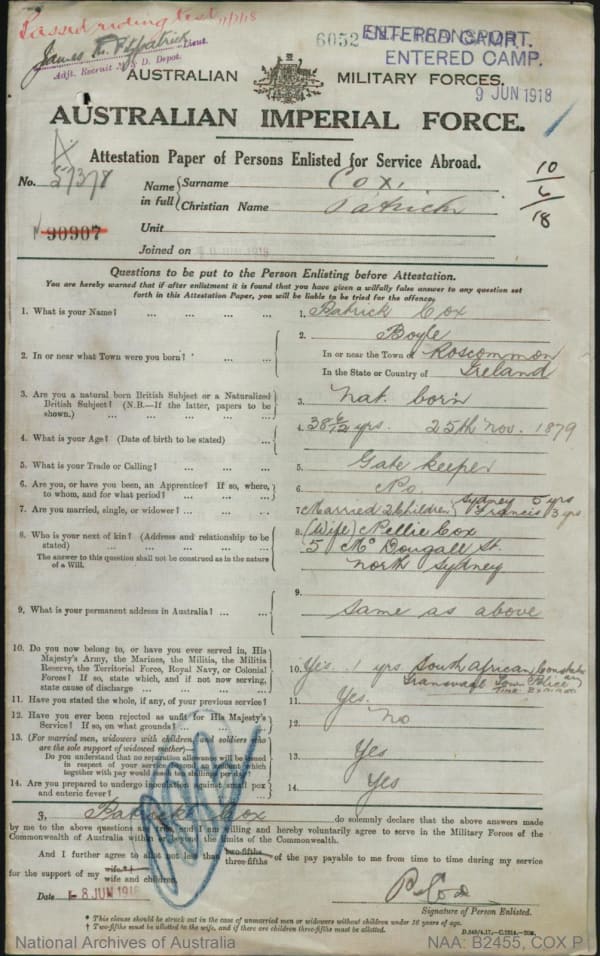 Passed riding test 11/7/18
James R. Fitzpatrick Lieut.
Adjt. Recruit M & D. Depot.
6052
ENTERED CAMP.
ENTERED CAMP.
9 JUN 1918
AUSTRALIAN MILITARY FORCES.
AUSTRALIAN IMPERIAL FORCE.
Attestation Paper of Persons Enlisted for Service Abroad.
No. 57378
Name in full
Surname Cox,
Christian Name Patrick
10/6/18
90907
Unit
Joined on 1918
Questions to be put to the Person Enlisting before Attestation.
You are hereby warned that if after enlistment it is found that you have given a wilfully false answer to any question set
forth in this Attestation Paper, you will be liable to be tried for the offence.
1. What is your Name? ... ... ... ... 1. Patrick Cox
2. In or near what Town were you born? ... ... 2. Boyle
In or near the Town of Roscommon
In the State or Country of Ireland
3. Are you a natural born British Subject or a Naturalized
British Subject? (N.B.—If the latter, papers to be
shown.) ... ... ... ... 3. Nat. born
4. What is your Age? (Date of birth to be stated) ... 4. 38 6/12 yrs. 25th Nov. 1879
5. What is your Trade or Calling? ... ... ... 5. Gate keeper
6. Are you, or have you been, an Apprentice? If so, where,
to whom, and for what period? ... ... ... 6. No
7. Are you married, single, or widower? ... ... 7. Married 2 Children Sydney 5 yrs
Francis 3 yrs.
8. Who is your next of kin? (Address and relationship to be
stated) ... ... ... ...
The answer to this question shall not be construed as in the nature
of a Will.
8. (Wife) Nellie Cox
5 McDougall St.
North Sydney
9. What is your permanent address in Australia? ... ... 9. Same as above
10. Do you now belong to, or have you ever served in, His
Majesty's Army, the Marines, the Militia, the Militia
Reserve, the Territorial Force, Royal Navy, or Colonial
Forces? If so, state which, and if not now serving,
state cause of discharge ... ... ... ...
10. Yes. 1 yrs South African Constabulary
Transvaal Town Police
Time Expired
11. Have you stated the whole, if any, of your previous service? 11. Yes.
12. Have you ever been rejected as unfit for His Majesty's
Service? If so, on what grounds? ... ... ... 12. No
13. (For married men, widowers with children, and soldiers who
are the sole support of widowed mother)—
Do you understand that no separation allowance will be issued
in respect of your service beyond an amount which
together with pay would reach ten shillings per day? 13. Yes
14. Are you prepared to undergo inoculation against small pox
and enteric fever? 14. Yes
I, Patrick Cox do solemnly declare that the above answers made
by me to the above questions are true, and I am willing and hereby voluntarily agree to serve in the Military Forces of the
Commonwealth of Australia within or beyond the limits of the Commonwealth.
And I further agree to allot not less than two-fifths three-fifths of the pay payable to me from time to time during my service
for the support of my wife* wife and children.
Date 8 JUN 1918
P Cox
Signature of Person Enlisted.
* This clause should be struck out in the case of unmarried men or widowers without children under 16 years of age.
† Two-fifths must be allotted to the wife, and if there are children three-fifths must be allotted.
National Archives of Australia
NAA: B2455, COX P